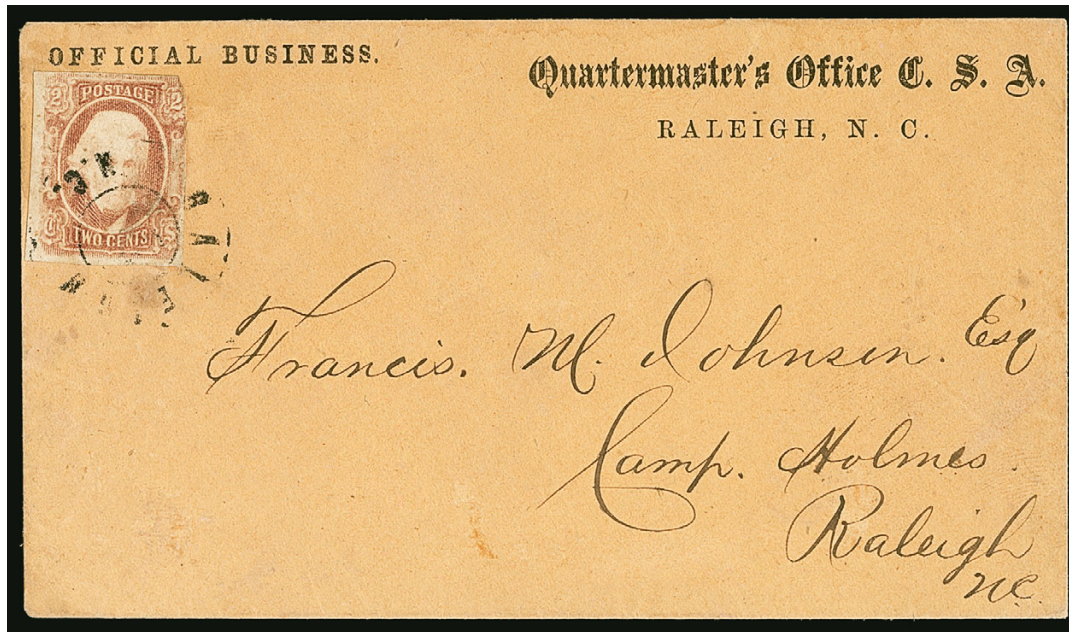 OFFICIAL BUSINESS.
Quartermaster's Office C. S. A.
RALEIGH, N. C.
2 POSTAGE 2
TWO CENTS
RALEIGH N.C.
Francis. M. Johnson. Esq
Camp. Holmes.
Raleigh
NC.